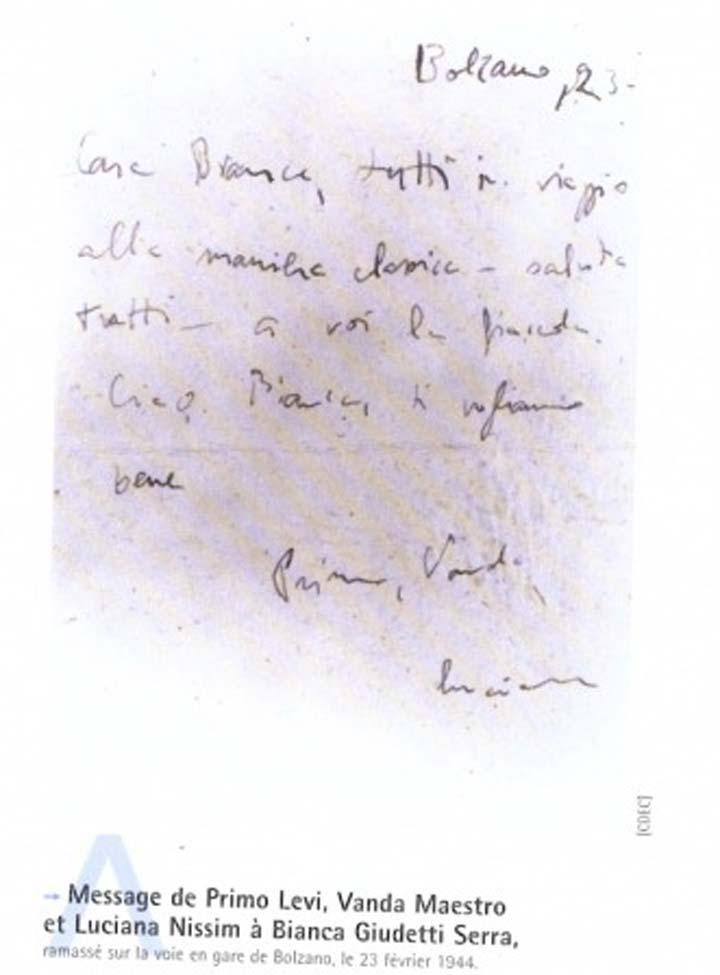 Bolzano, 23-
Cara Bianca, tutti in viaggio
alla maniera classica – saluta
tutti – a voi la fiaccola.
Ciao Bianca, ti vogliamo
bene
Primo, Vanda
Luciana
[CDEC]
A
→ Message de Primo Levi, Vanda Maestro
et Luciana Nissim à Bianca Giudetti Serra,
ramassé sur la voie en gare de Bolzano, le 23 février 1944.